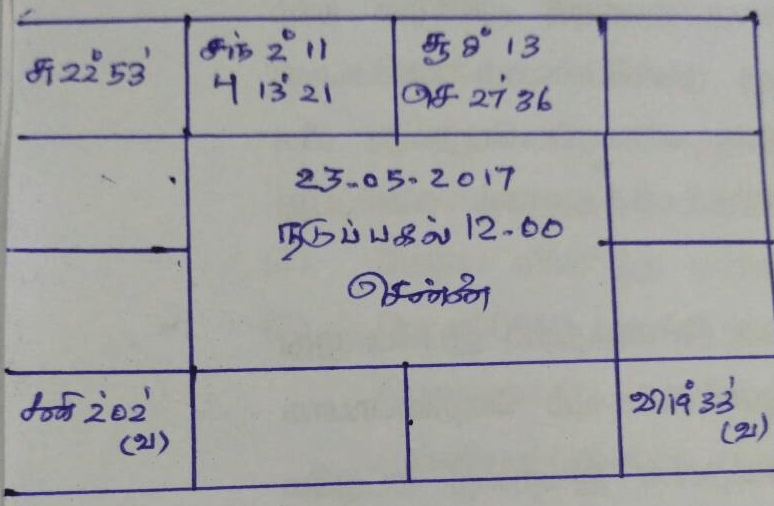 சு 22° 53'
சந் 2° 11
பு 13° 21
சூ 8° 13
செ 27' 36
23-05-2017
நடுப்பகல் 12-00
சென்னை
சனி 2° 02'
(வ)
வி 19° 33'
(வ)